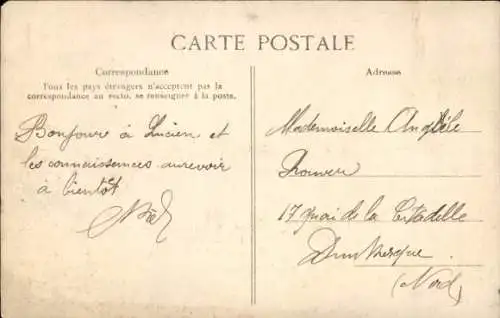 CARTE POSTALE
Correspondance
Tous les pays étrangers n'acceptent pas la
correspondance au recto, se renseigner à la poste.
Bonjour à Lucien et
les connaissances aurevoir
à bientôt
Adresse
Mademoiselle Angèle
17 quai de la Citadelle
Dunkerque
(Nord)